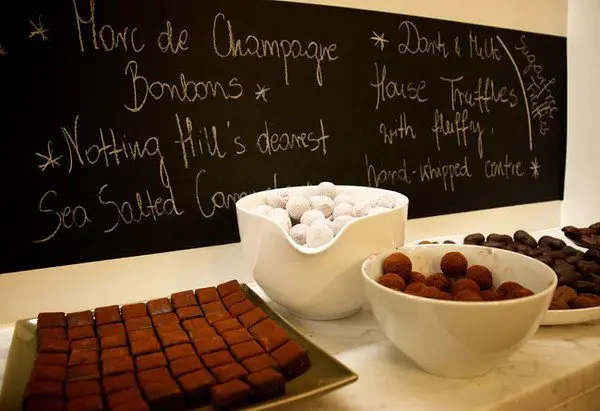 Marc de Champagne
Bonbons
Notting Hill's dearest
Sea Salted
Dark & Milk
House Truffles
with fluffy
hand-whipped centre